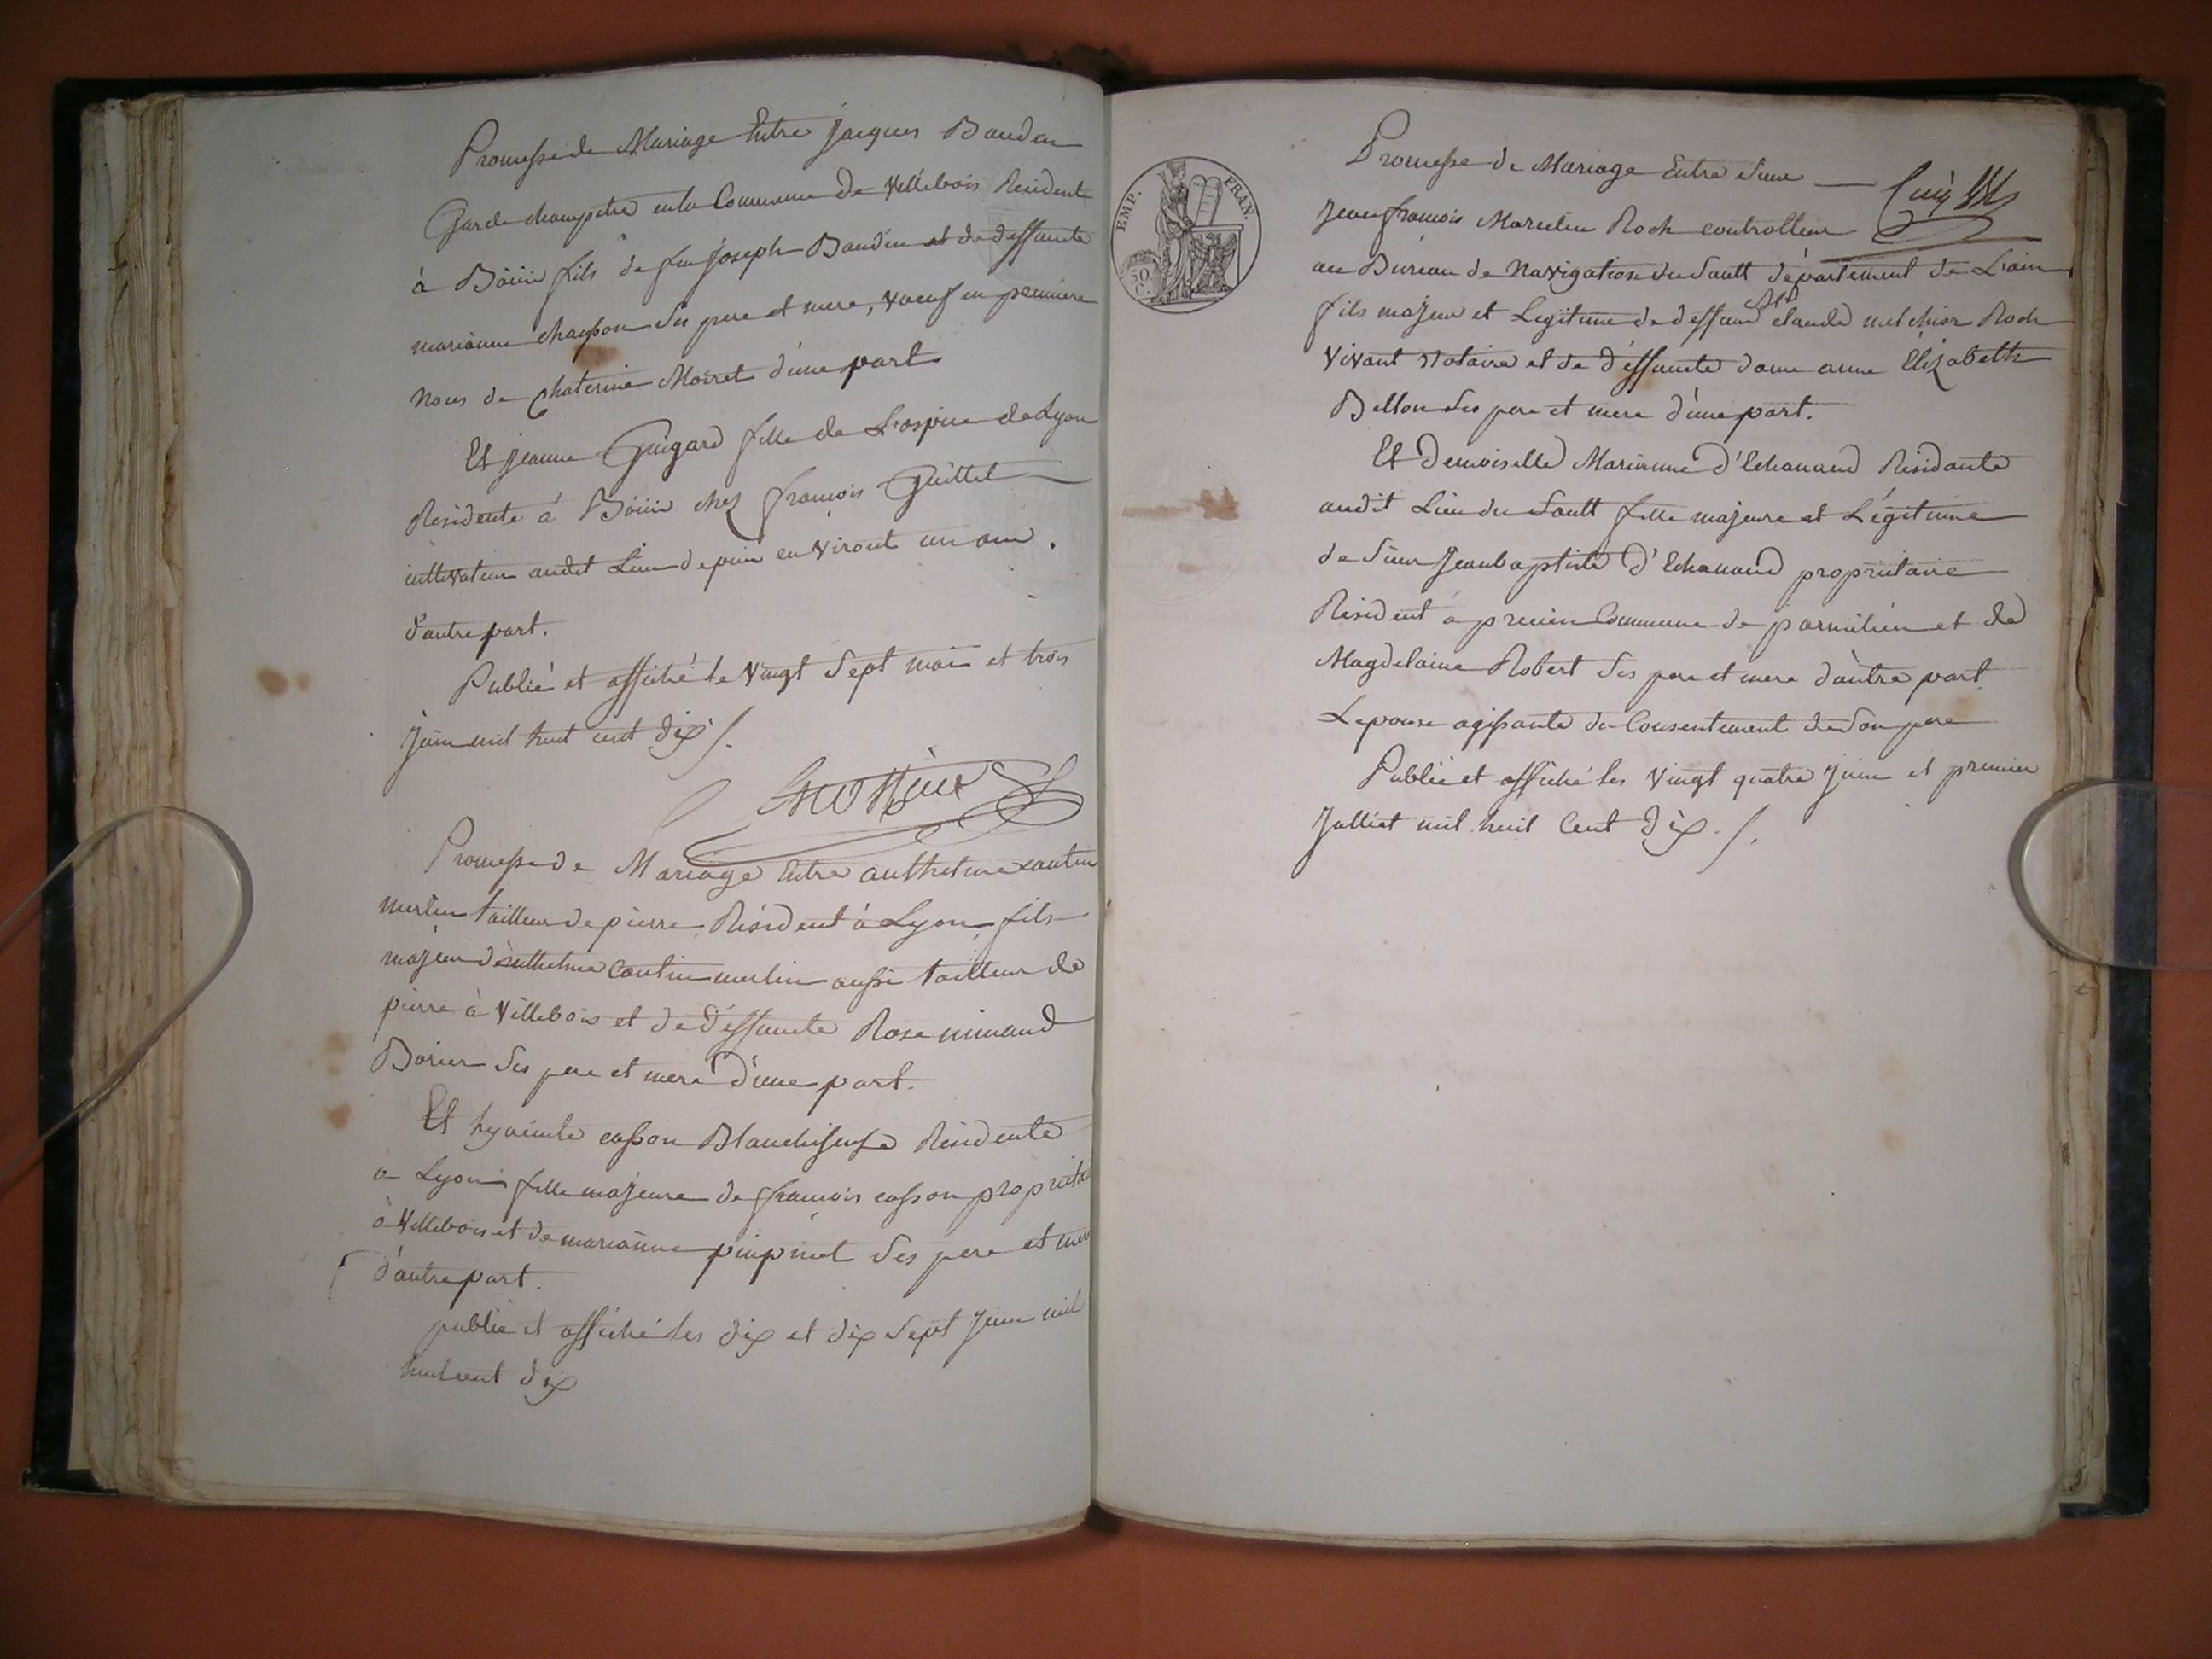 Promesse de Mariage Entre jacques Baudin
Garde champetre en la Commune de Villebois Résident
à Bôüis fils de feu joseph Baudin et de deffunte
marianne chanson ses pere et mere, vœuf en premiere
noces de Chaterine Moiret d'une part
Et jeanne Guigard fille de L'ospice de Lyon
Residente à Bôüis chez françois Guillet
cultivateur audit Lieu depuis environt un an.
d'autre part.
Publié et affiché le vingt sept mai et trois
juin mil huit cent dix /.
Promesse de Mariage Entre anthelme cantin
merlin tailleur de pierre Résident à Lyon fils
majeur d'anthelme Cantin merlin aussi tailleur de
pierre à Villebois et de deffunte Rose minand
Borier ses pere et mere d'une part.
Et hyacinte casson Blanchiseuse Résidente
a Lyon fille majeure de françois casson proprieta
à Villebois et de marianne pinpinet ses pere et mere
d'autre part.
publié et affiché les dix et dix sept juin mil
huit cent dix
Promesse de Mariage Entre sieur
Jean françois Marcelin Roch controlleur
au Bureau de Navigation du Sault département de L'ain
fils majeur et Legitime de deffunt Sr claude melchior Roch
vivant Notaire et de deffunte dame anne Elizabeth
Bellon ses pere et mere d'une part.
Et Demoiselle Marianne d'Echanaud Residante
audit Lieu du Sault fille majeure et Légitime
de sieur Jean baptiste d'Echanaud proprietaire
Résident à Commune de parmilieu et de
Magdelaine Robert ses pere et mere d'autre part
Lepouse agissante du Consentement de son pere
Publié et affiché les vingt quatre juin et premier
Julliet mil huit Cent dix ./.
EMP. FRAN.
50 C.